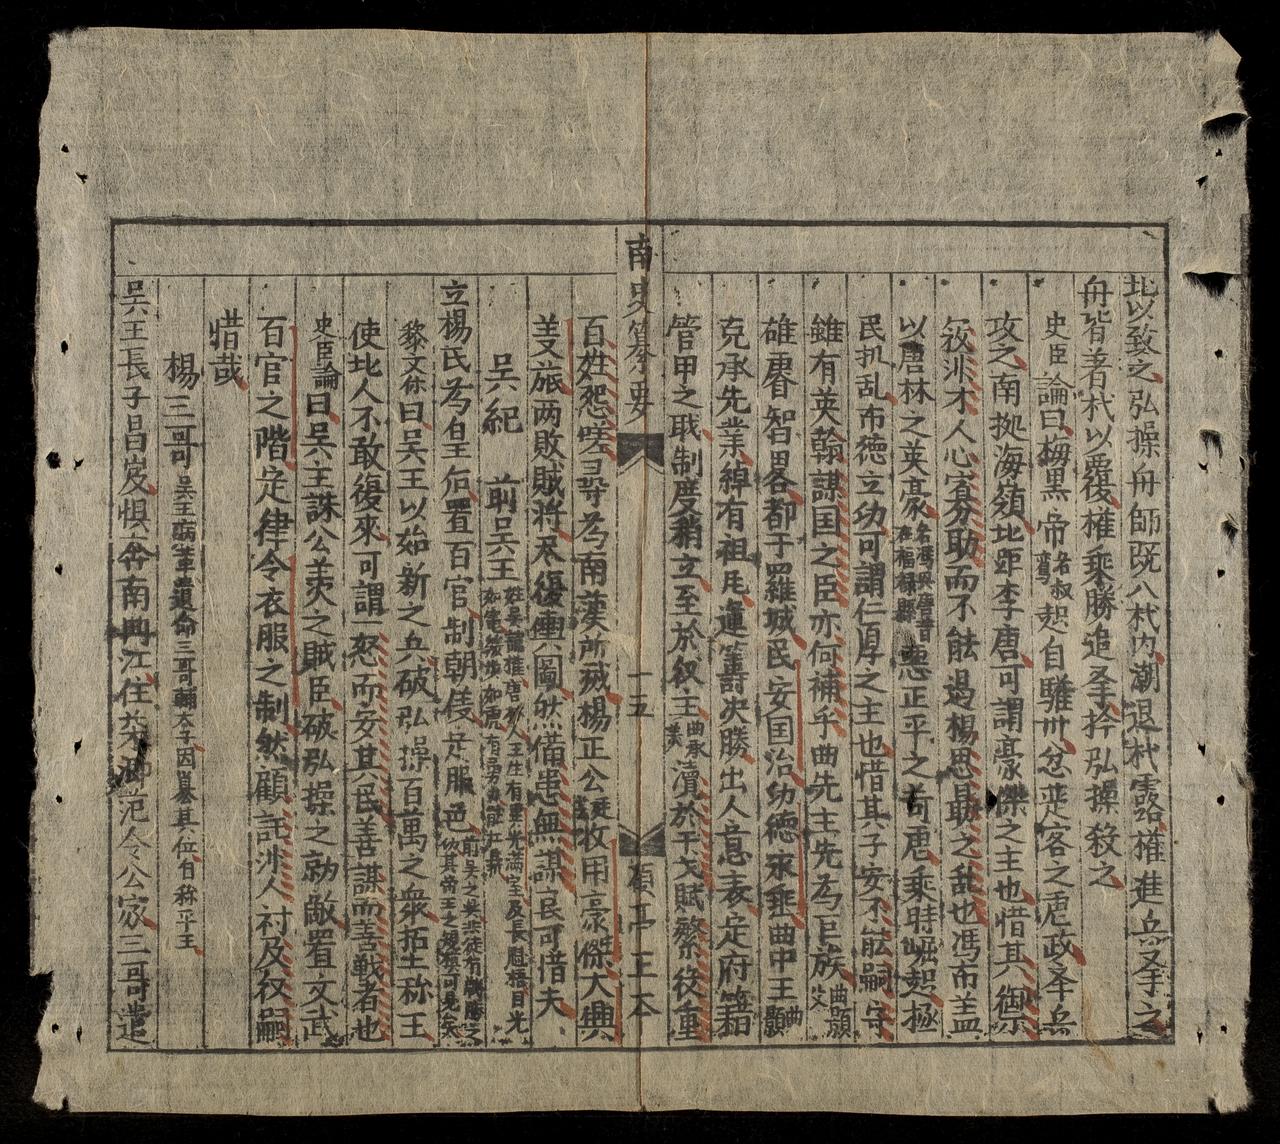 北以致之弘操舟師既入杙内潮退杙露權進兵爭之
舟皆著杙以覆權乘勝追爭扲弘操殺之
史臣論曰梅黑帝名叔鸞起自驩州忿楚客之虐政率兵
攻之南拠海嶺北距李唐可謂豪傑之主也惜其御
衆非才人心寡助而不能遏楊思勗之乱也馮布盖
以唐林之英豪在福禄縣名馮與唐昔憨正平之苛虐乘時崛起拯
民㧄乱布德立功可謂仁厚之主也惜其子安不能嗣守
雖有英翰謀囯之臣亦何補乎曲先主先為巨族曲顥父
雄睿智畧都于羅城民安囯治功德永垂曲中王曲顥
克承先業綽有祖風運籌决勝出人意表定府籍和
管甲之職制度稍立至於後王曲承美瀆於干戈賦繁役重
南史纂要
十五
顧亭正本
百姓怨咲尋為南漢所㓕楊正公廷藝收用豪傑大興
義旅兩敗賊將尽復輿圖然備患無謀良可惜夫
吳紀　前吳王
立楊氏為皇后置百官制朝儀定服色
黎文休曰吳王以始新之兵破弘操百萬之衆拓土称王
使北人不敢復來可謂一怒而安其民善謀而善戰者也
史臣論曰吳主誅公羨之賊臣破弘操之勍敵置文武
百官之階定律令衣服之制然顧託非人衬及後嗣
惜哉
楊三哥吳王病革遺命三哥輔太子因簒其位自称平王
吳王長子昌岌惧奔南冊江住茶鄉范令公家三哥遣